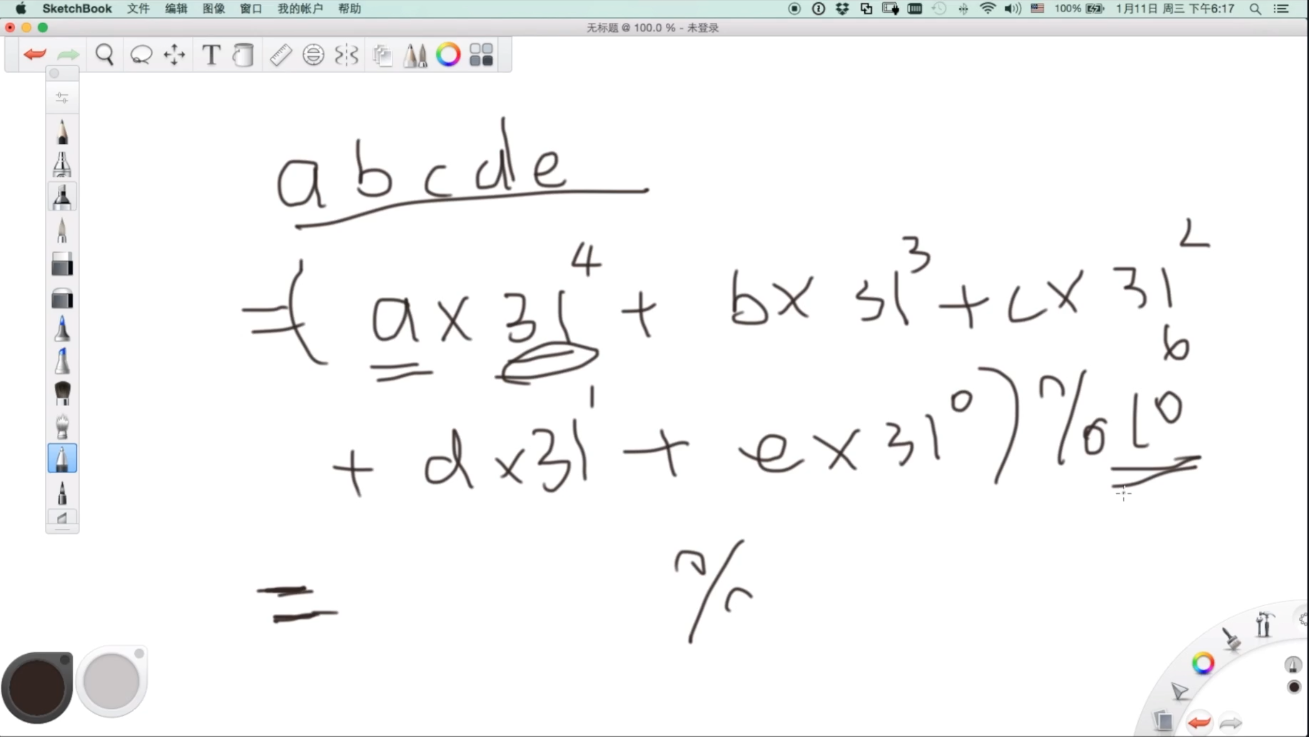 SketchBook 文件 编辑 图像 窗口 我的帐户 帮助 100% 1月11日 周三 下午6:17
无标题 @ 100.0 % - 未登录
T
abcde
=( a x 31^4 + b x 31^3 + c x 31^2
+ d x 31^1 + e x 31^0 ) % 10^6
= %